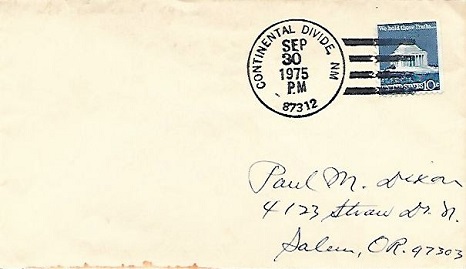 CONTINENTAL DIVIDE, NM
SEP
30
1975
PM
87312
We hold these Truths...
10c
Paul M. Dixon
4123 Straw Dr. N.
Salem, OR. 97303